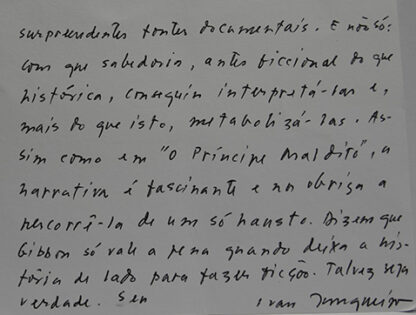 surpreendentes fontes documentais. E não só:
com que sabedoria, antes ficcional do que
histórica, conseguiu interpretá-las e,
mais do que isto, metabolizá-las. As-
sim como em "O Príncipe Maldito", a
narrativa é fascinante e nos obriga a
percorrê-la de um só hausto. Dizem que
Gibbon só vale a pena quando deixa a his-
tória de lado para fazer ficção. Talvez seja
verdade. Seu Ivan Junqueira